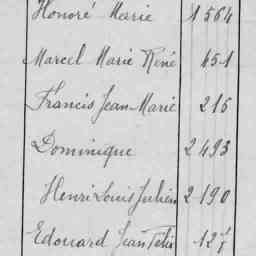 Honoré Marie 1564
Marcel Marie René 451
Francis Jean Marie 215
Dominique 2493
Henri Louis Julien 2190
Edouard Jean Félix